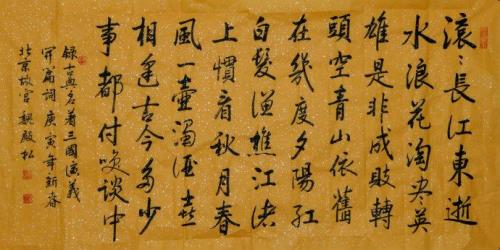 滾〻長江東逝
水浪花淘尽英
雄是非成敗轉
頭空青山依舊
在幾度夕陽紅
白髮漁樵江渚
上慣看秋月春
風一壺濁酒喜
相逢古今多少
事都付咲談中
錄古典名著三國演義
開篇詞庚寅年新春
北京故宮魏殿松